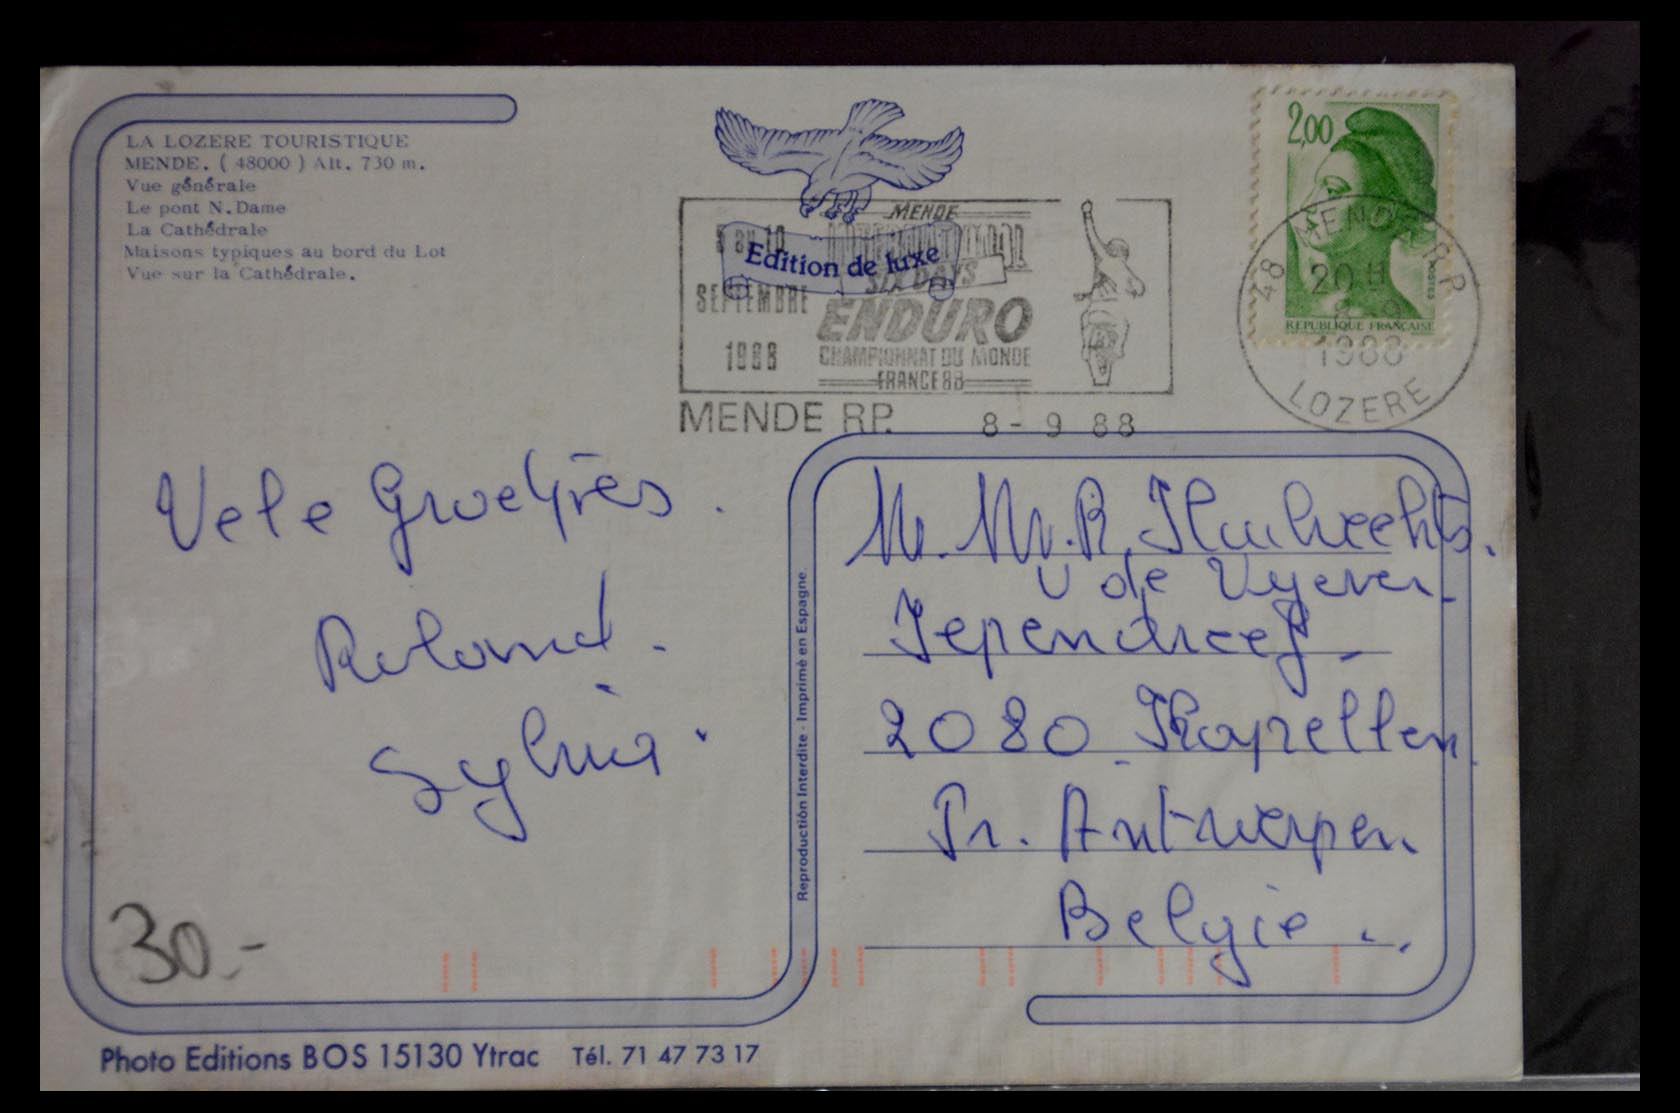 LA LOZERE TOURISTIQUE
MENDE. ( 48000 ) Alt. 730 m.
Vue générale
Le pont N. Dame
La Cathédrale
Maisons typiques au bord du Lot
Vue sur la Cathédrale.
Edition de luxe
MENDE
SIX DAYS
SEPTEMBRE
ENDURO
1988
CHAMPIONNAT DU MONDE
FRANCE 88
MENDE RP. 8 - 9 88
2,00
POSTES
REPUBLIQUE FRANÇAISE
48 MENDE R.P
20 H
1988
LOZERE
Vele Groetjes.
Roland.
Sylvia.
M. Mr. R.
v de Vyver
2080 Kapellen
Pr. Antwerpen.
Belgie
30.-
Reproduction Interdite - Imprimé en Espagne.
Photo Editions BOS 15130 Ytrac Tél. 71 47 73 17